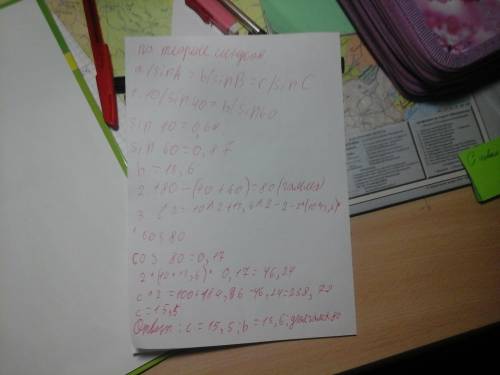 по теореме синусов
a/sinA = b/sinB = c/sinC
1. 10/sin40 = b/sin60
sin 40 = 0,64
sin 60 = 0,87
b = 13,6
2 180-(40+60)=80(
3 c^2 = 10^2+13,6^2-2*(10*13,6)*
* cos 80
cos 80 = 0,17
2*(10*13,6)* 0,17 = 46,24
c^2 =100+184,96-46,24=238,72
c = 15,5
Ответ: c = 15,5; b = 13,6; 80